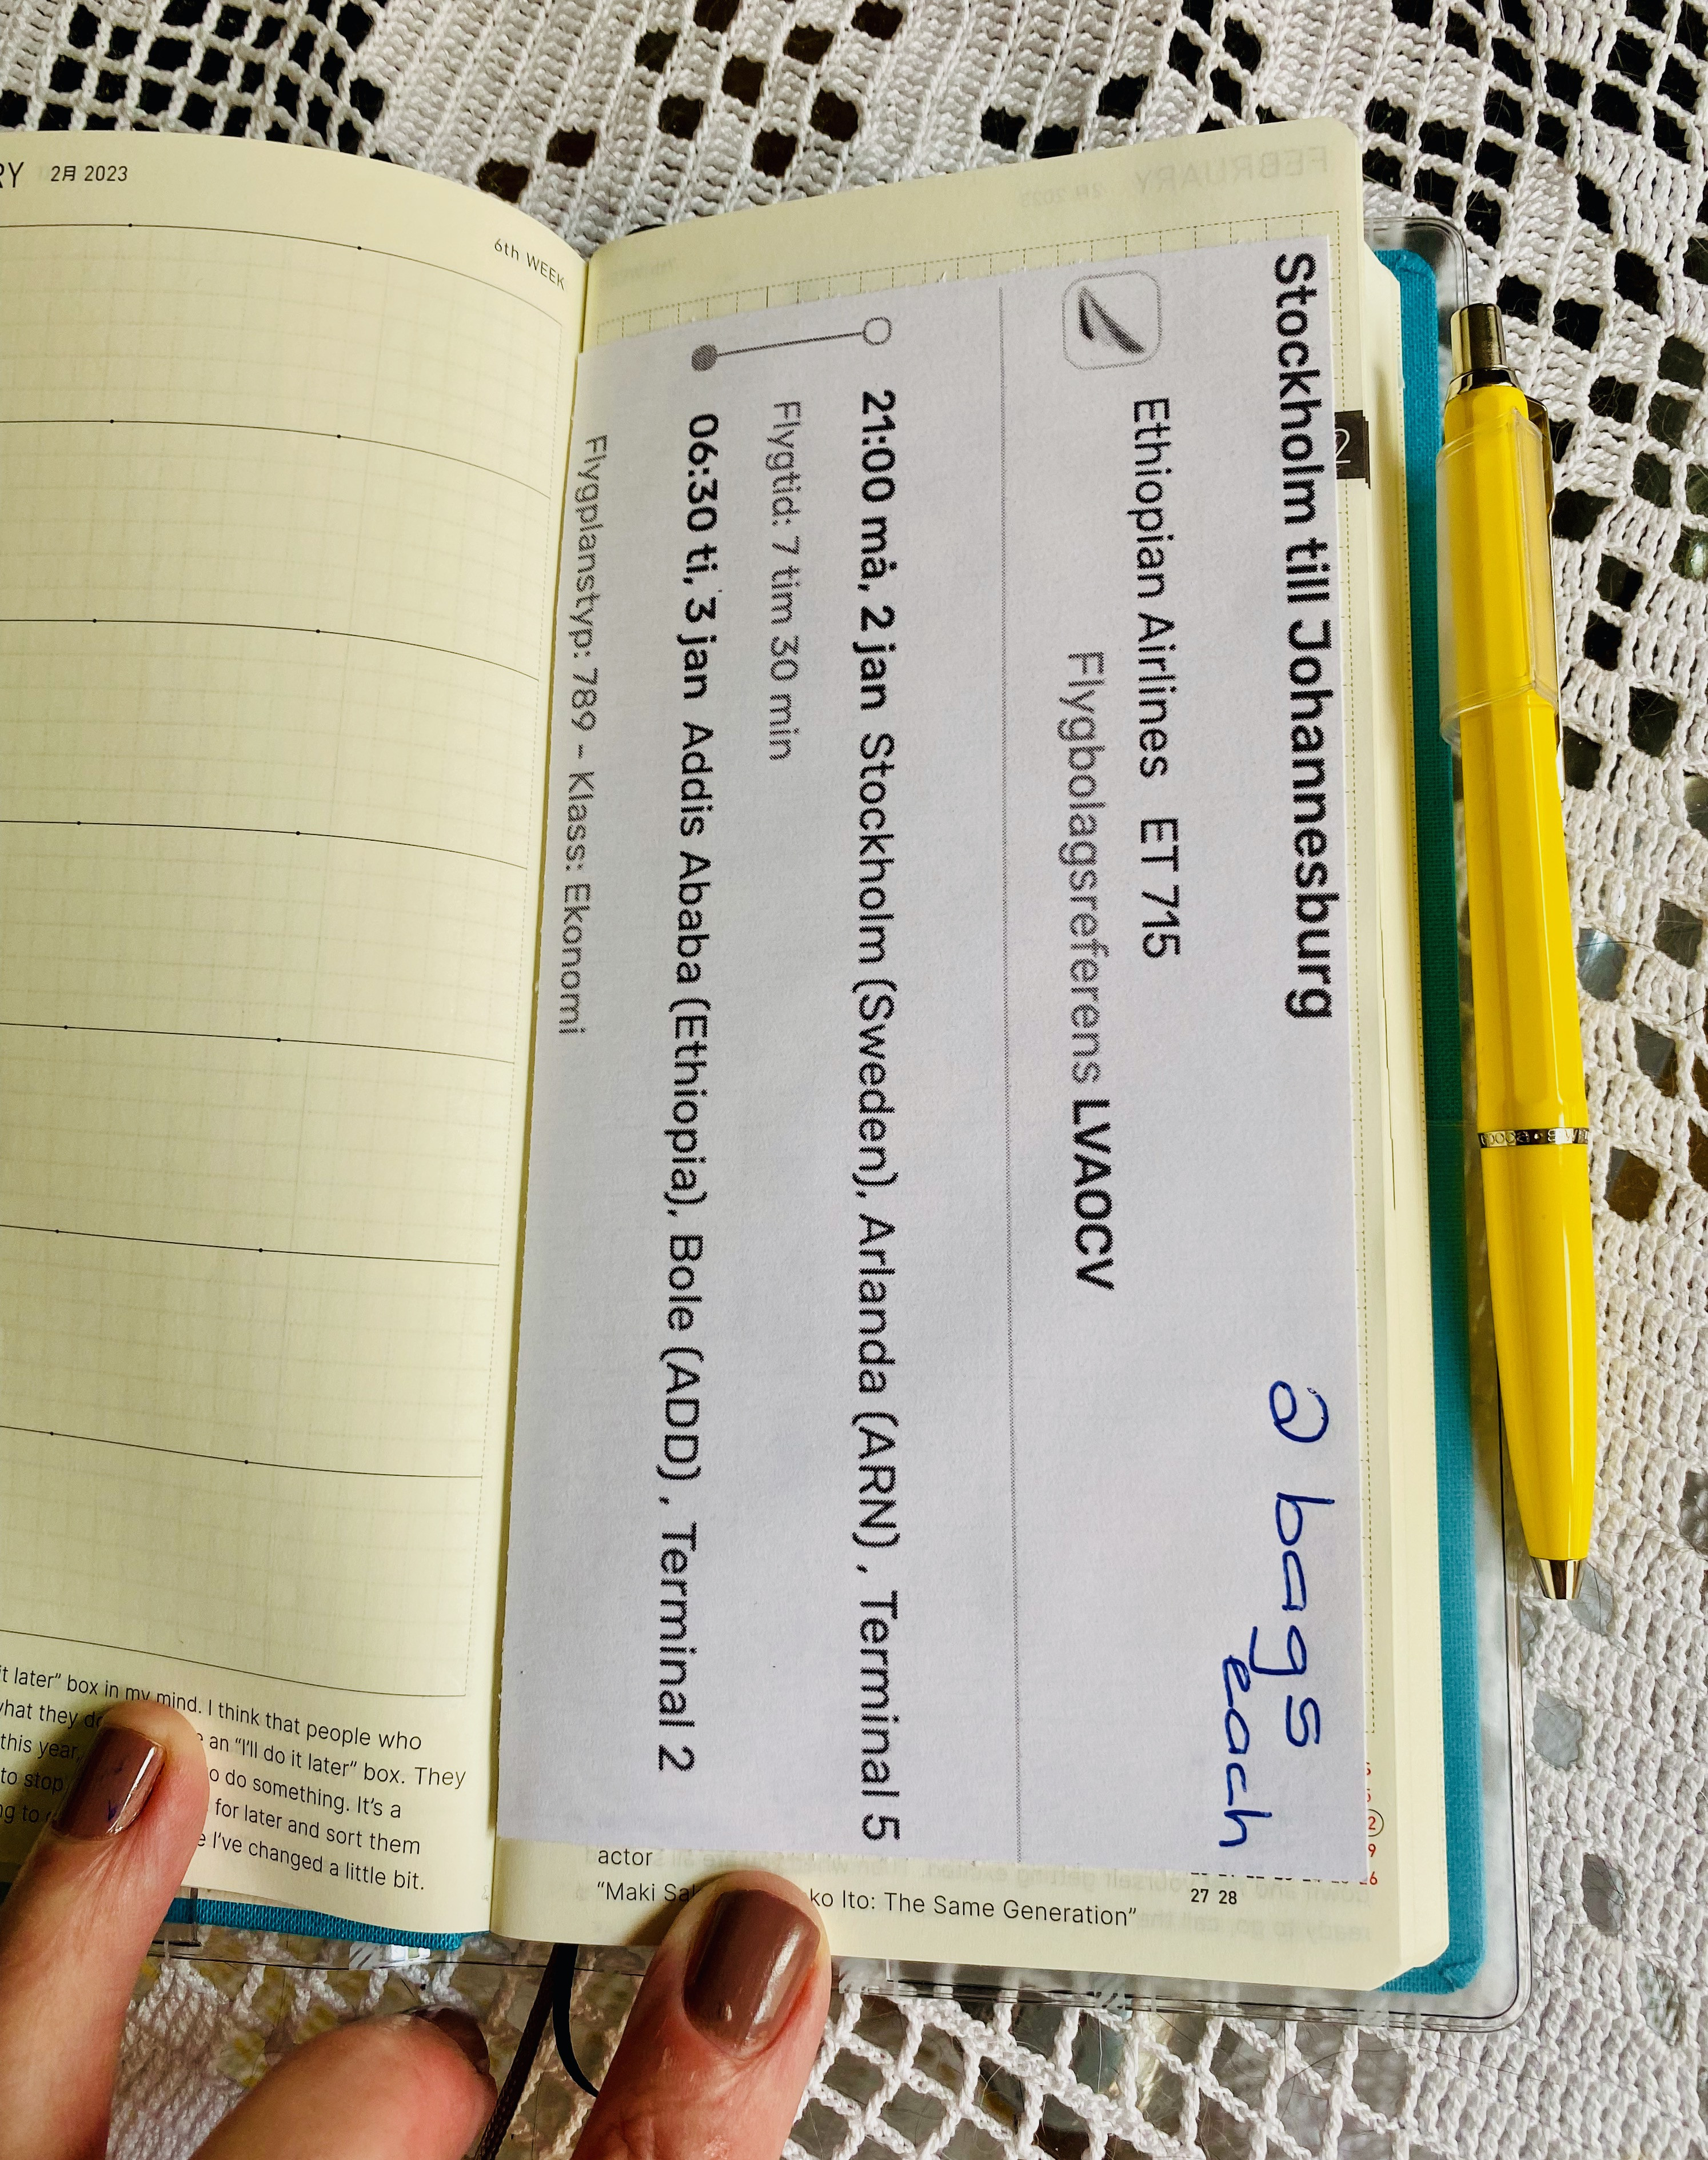 RY 2月 2023
6th WEEK
it later” box in my mind. I think that people who
what they do an “I’ll do it later” box. They
this year, o do something. It’s a
to stop for later and sort them
ng to e I’ve changed a little bit.
FEBRUARY 2月 2023
2
Stockholm till Johannesburg
2 bags
each
Ethiopian Airlines ET 715
Flygbolagsreferens LVAOCV
21:00 må, 2 jan Stockholm (Sweden), Arlanda (ARN) , Terminal 5
Flygtid: 7 tim 30 min
06:30 ti, 3 jan Addis Ababa (Ethiopia), Bole (ADD) , Terminal 2
Flygplanstyp: 789 - Klass: Ekonomi
actor
“Maki Sa ko Ito: The Same Generation”
27 28